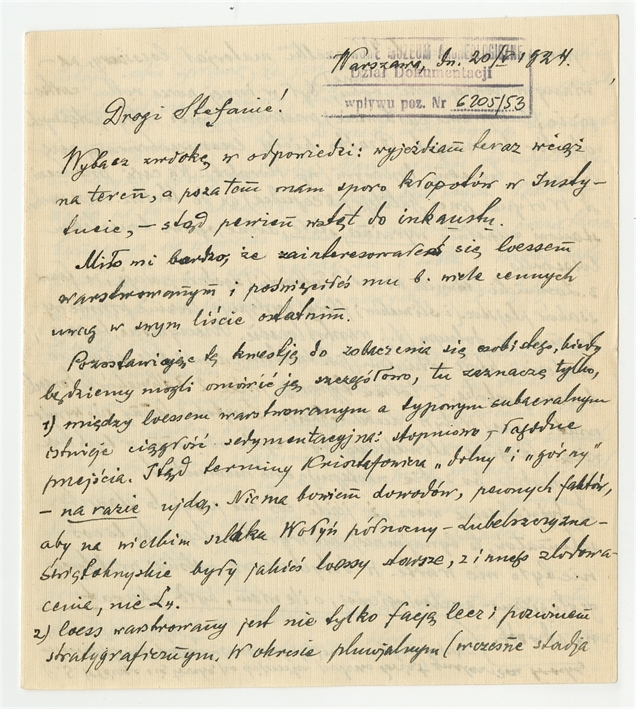 MUZEUM ARCHEOLOGICZNE
Dział Dokumentacji
wpływu poz. Nr 6205/53
Warszawa, dn. 20/V 1924.
Drogi Stefanie!
Wybacz zwłokę w odpowiedzi: wyjeżdżam teraz wciąż
na teren, a pozatem mam sporo kłopotów w Insty-
tucie, – stąd pewien wstręt do inkaustu.
Miło mi bardzo, że zainteresowałeś się loessem
warstwowanym i poświęciłeś mu b. wiele cennych
uwag w swym liście ostatnim.
Pozostawiając tę kwestję do zobaczenia się osobistego, kiedy
będziemy mogli omówić ją szczegółowo, tu zaznaczę tylko,
1) między loessem warstwowanym a typowym subaeralnym
istnieje ciągłość sedymentacyjna: stopniowe, łagodne
przejścia. Stąd terminy Krisztafowicza „dolny" i „górny"
– na razie ujdą. Niema bowiem dowodów, pewnych faktów,
aby na wielkim szlaku Wołyń północny – Lubelszczyzna –
Świętokrzyskie były jakieś loessy starsze, z innego zlodowa-
cenia, nie L4.
2) loess warstwowany jest nie tylko facją lecz i poziomem
stratygraficznym. W okresie pluwjalnym (wczesne stadja